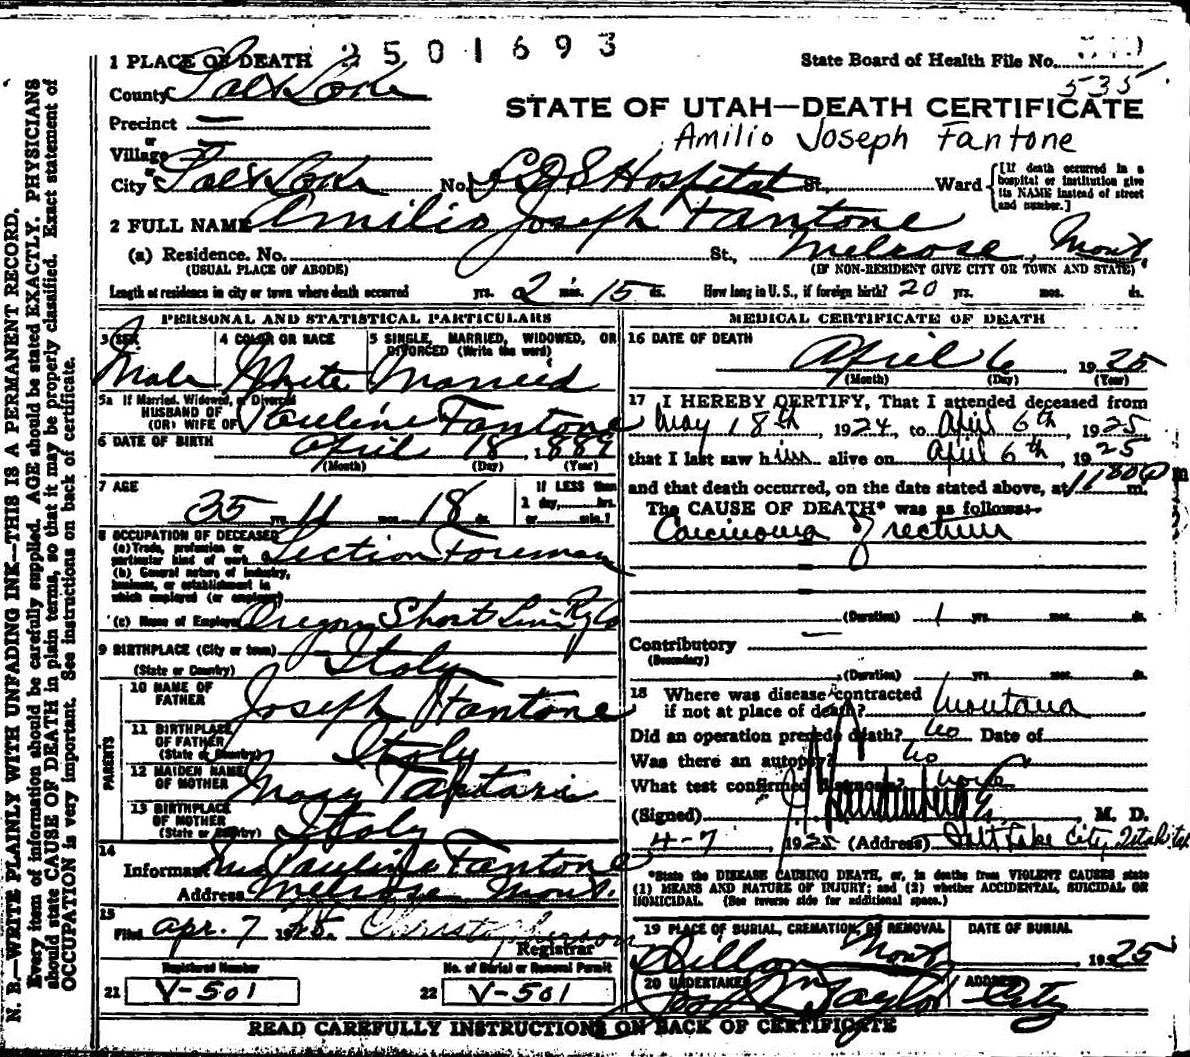 2501693
State Board of Health File No. 
535
1 PLACE OF DEATH
County Salt Lake
STATE OF UTAH—DEATH CERTIFICATE
Precinct —
Amilio Joseph Fantone
or
Village —
or
City Salt Lake No. L D S Hospital St., Ward
[If death occurred in a hospital or institution give its NAME instead of street and number.]
2 FULL NAME Amilio Joseph Fantone
(a) Residence. No. St., Melrose, Mont.
(USUAL PLACE OF ABODE) (IF NON-RESIDENT GIVE CITY OR TOWN AND STATE)
Length of residence in city or town where death occurred yrs. 2 mos. 15 ds. How long in U. S., if foreign birth? 20 yrs. mos. ds.
PERSONAL AND STATISTICAL PARTICULARS
3 SEX Male
4 COLOR OR RACE White
5 SINGLE, MARRIED, WIDOWED, OR DIVORCED (Write the word) Married
5a If Married, Widowed, or Divorced
HUSBAND OF
(OR) WIFE OF Pauline Fantone
6 DATE OF BIRTH April 18, 1889
(Month) (Day) (Year)
7 AGE 35 yrs. 11 mos. 18 ds.
If LESS than 1 day, hrs. or min.?
8 OCCUPATION OF DECEASED
(a) Trade, profession or particular kind of work Section Foreman
(b) General nature of industry, business, or establishment in which employed (or employer)
(c) Name of Employer Oregon Short Line Ry Co
9 BIRTHPLACE (City or town)
(State or Country) Italy
PARENTS
10 NAME OF FATHER Joseph Fantone
11 BIRTHPLACE OF FATHER (State or Country) Italy
12 MAIDEN NAME OF MOTHER Mary
13 BIRTHPLACE OF MOTHER (State or Country) Italy
14
Informant Mrs Pauline Fantone
Address Melrose Mont.
15
Filed Apr. 7 1925. Christopherson
Registrar
Registered Number No. of Burial or Removal Permit
21 V-501 22 V-501
MEDICAL CERTIFICATE OF DEATH
16 DATE OF DEATH
April 6 1925
(Month) (Day) (Year)
17 I HEREBY CERTIFY, That I attended deceased from
May 18th, 1924, to April 6th, 1925
that I last saw him alive on April 6th, 1925
and that death occurred, on the date stated above, at m.
The CAUSE OF DEATH* was as follows:
Carcinoma of rectum
(Duration) 1 yrs. mos. ds.
Contributory —
(Secondary)
(Duration) yrs. mos. ds.
18 Where was disease contracted
if not at place of death? Montana
Did an operation precede death? No Date of
Was there an autopsy? No
What test confirmed diagnosis?
(Signed) M. D.
4-7, 1925 (Address) Salt Lake City, Utah
*State the DISEASE CAUSING DEATH, or, in deaths from VIOLENT CAUSES state
(1) MEANS AND NATURE OF INJURY; and (2) whether ACCIDENTAL, SUICIDAL OR
HOMICIDAL. (See reverse side for additional space.)
19 PLACE OF BURIAL, CREMATION, OR REMOVAL DATE OF BURIAL
Dillon Mont. 1925
20 UNDERTAKER ADDRESS
Jos Taylor City
READ CAREFULLY INSTRUCTIONS ON BACK OF CERTIFICATE
N. B.—WRITE PLAINLY WITH UNFADING INK—THIS IS A PERMANENT RECORD.
Every item of information should be carefully supplied. AGE should be stated EXACTLY. PHYSICIANS
should state CAUSE OF DEATH in plain terms, so that it may be properly classified. Exact statement of
OCCUPATION is very important. See instructions on back of certificate.